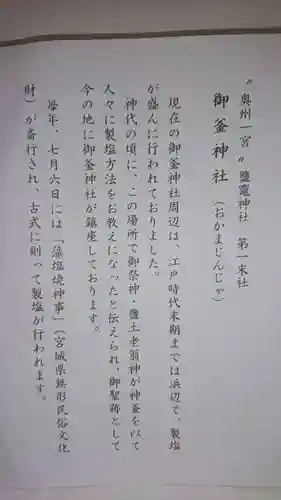 〝奥州一宮〟鹽竈神社 第一末社
御釜神社(おかまじんじゃ)
現在の御釜神社周辺は、江戸時代末期までは浜辺で、製塩
が盛んに行われておりました。
神代の頃に、この場所で御祭神・鹽土老翁神が神釜を以て
人々に製塩方法をお教えになったと伝えられ、御聖跡として
今の地に御釜神社が鎮座しております。
毎年、七月六日には「藻塩焼神事」(宮城県無形民俗文化
財)が斎行され、古式に則って製塩が行われます。